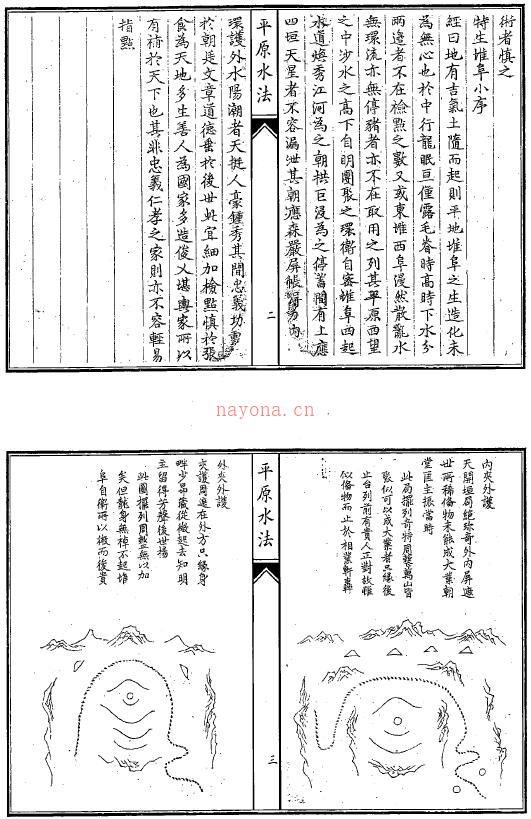 術者慎之
特生堆阜小序
經曰地有吉氣土隨而起則平地堆阜之生造化未
為無心也於中行龍眠亘僅露毛脊時高時下水分
兩邊者不在檢點之數又或東堆西阜漫然散亂水
無環流亦無停豬者亦不在取用之列其平原西望
之中沙水之高下自明團聚之環衛自密堆阜西起
水道遶秀江河為之朝拱巨浸為之停蓄間有上應
四垣天星者不容漏泄其朝應森嚴屏帳
環護外水陽潮者天挺人豪鍾秀其間忠義功
於朝廷文章道德垂於後世此宜細加檢點慎於
食為天地多生善人為國家多造俊乂堪輿家所以
有裨於天下也其非忠義仁孝之家則亦不容輕易
指點
平原水法
二
nayona.cn
內夾外護
天開垣局總珍奇外內屏遮
世所稀脩物未能成大業朝
堂匡主振當時
此局擺列奇特周整萬山皆
聚似可以成大業者只緣後
止台列前有貴人正對故雖
似脩物而止於相業軒轟
平原水法
三
外夾外護
交護周遮在外方只緣身
畔少昂藏從微起去知明
主留得芳聲後世揚
此圖擺列周整無以加
矣但龍身無棹不起堆
阜自衛所以微而後貴